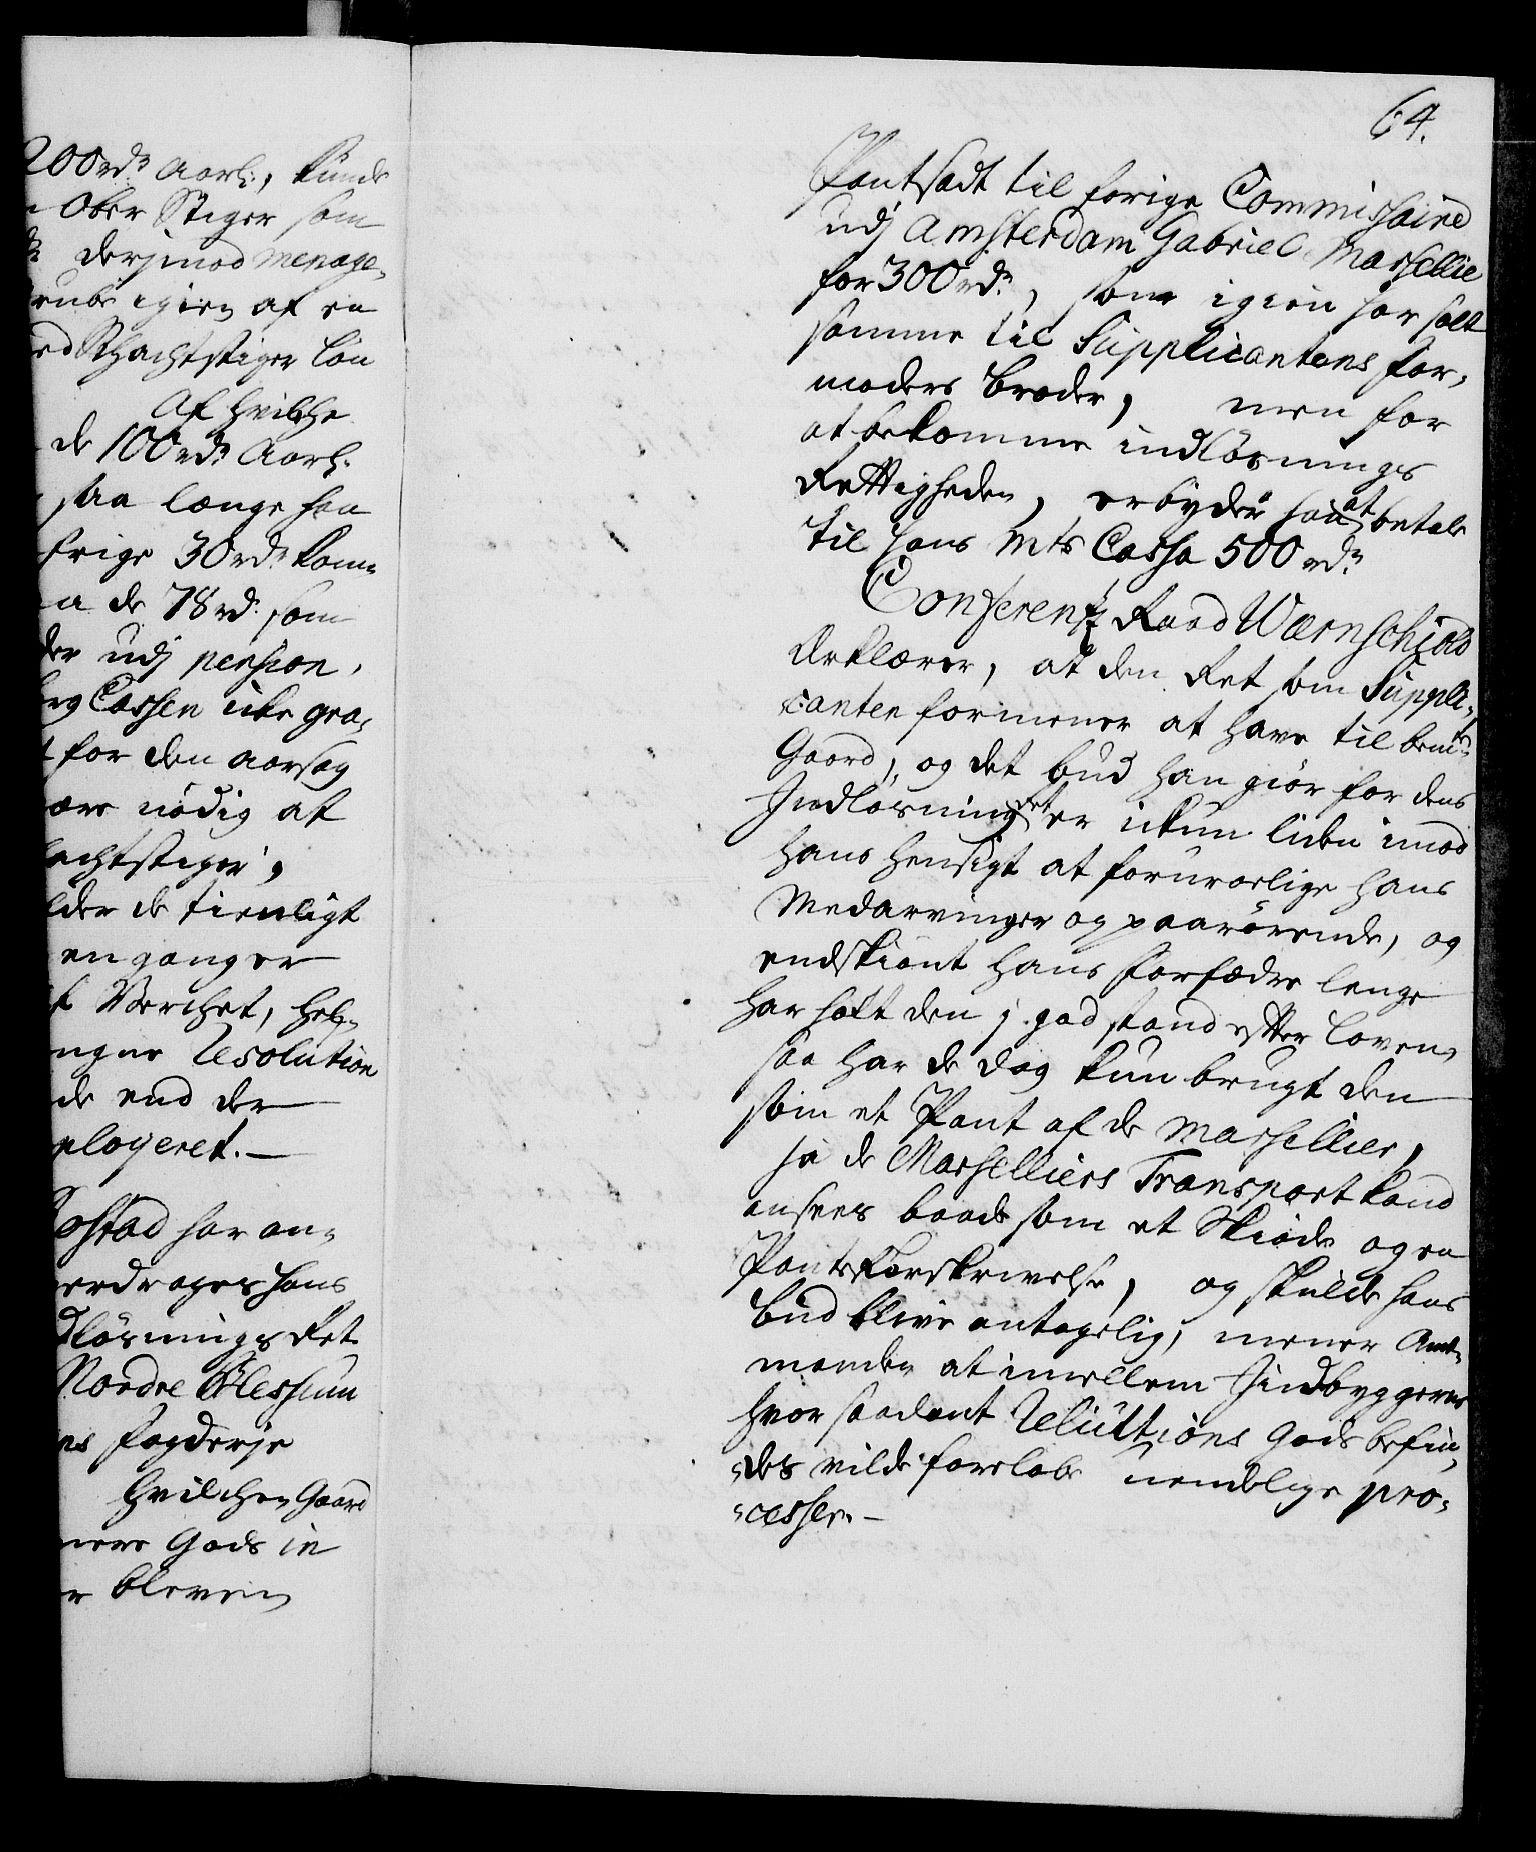 200 rd. aarl:, kunde
Ober Stiger som
derjmod menage,
igien af en
Schachtstiger løn
Af hvilche
de 100 rd. Aarl:
saa længe han
frige 30 rd. kom,
a de 78 rd. som
der udj pension,
Cassen icke gra,
t for den aarsag
være nødig at
achtstiger,
lder de tienligt
engang er
t Verchet, hel,
Resolution
de end der
ployeret.
ostad har an,
erdrages hans
dløsnings Ret
Nordre Hessum
es fogderje
hvilchen Gaard
Gods in
r bleven
64.
Pantsadt til forige Commissaire
udj Amsterdam Gabriel Marsellie
for 300 rd., som igien har solt
samme til Supplicantens for,
moders broder, men for
at bekomme indløsnings
Rettigheden, erbyder han at betale
til hans Mts Cassa 500 rd.
Conferentz Raad Wærnschiold
Erklærer, at den Ret som Suppli,
canten formener at have til bem:te
Gaard, og det bud han giør for dens
Indløsning det er ickun liden imod
hans hensigt at foruroelige hans
Medarvinger og paarørende, og
endskiønt hans forfædre lenge
har holt den j god stand efter loven,
saa har de dog kun brugt den
som et Pant af de Marsellier,
ja de Marselliers Transport kand
ansees baade som et Skiøde og en
Panteforskrivelse, og skulde hans
bud blive antagelig, mener Amt,
manden at imellem Jndbyggerne
hvor saadant Reluitions Gods befin,
des vilde foreløbe uendelige pro,
cesser.